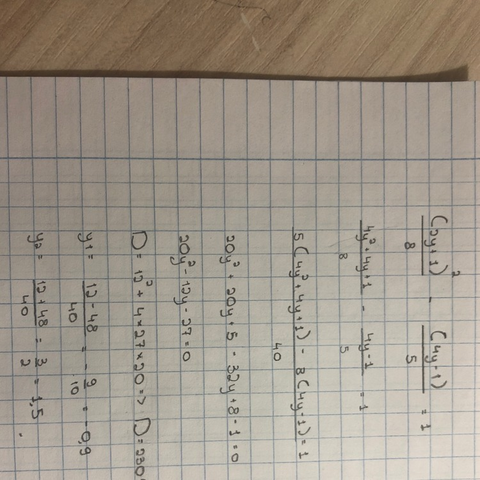 (2y+1)²/8 - (4y-1)/5 = 1
4y²+4y+1/8 - 4y-1/5 = 1
5(4y²+4y+1) - 8(4y-1)/40 = 1
20y²+20y+5-32y+8-1=0
20y²-12y-27=0
D = 12²+4×27×20 => D=230
y1 = 12-48/40 = -9/10 = -0,9
y2 = 12+48/40 = 3/2 = 1,5